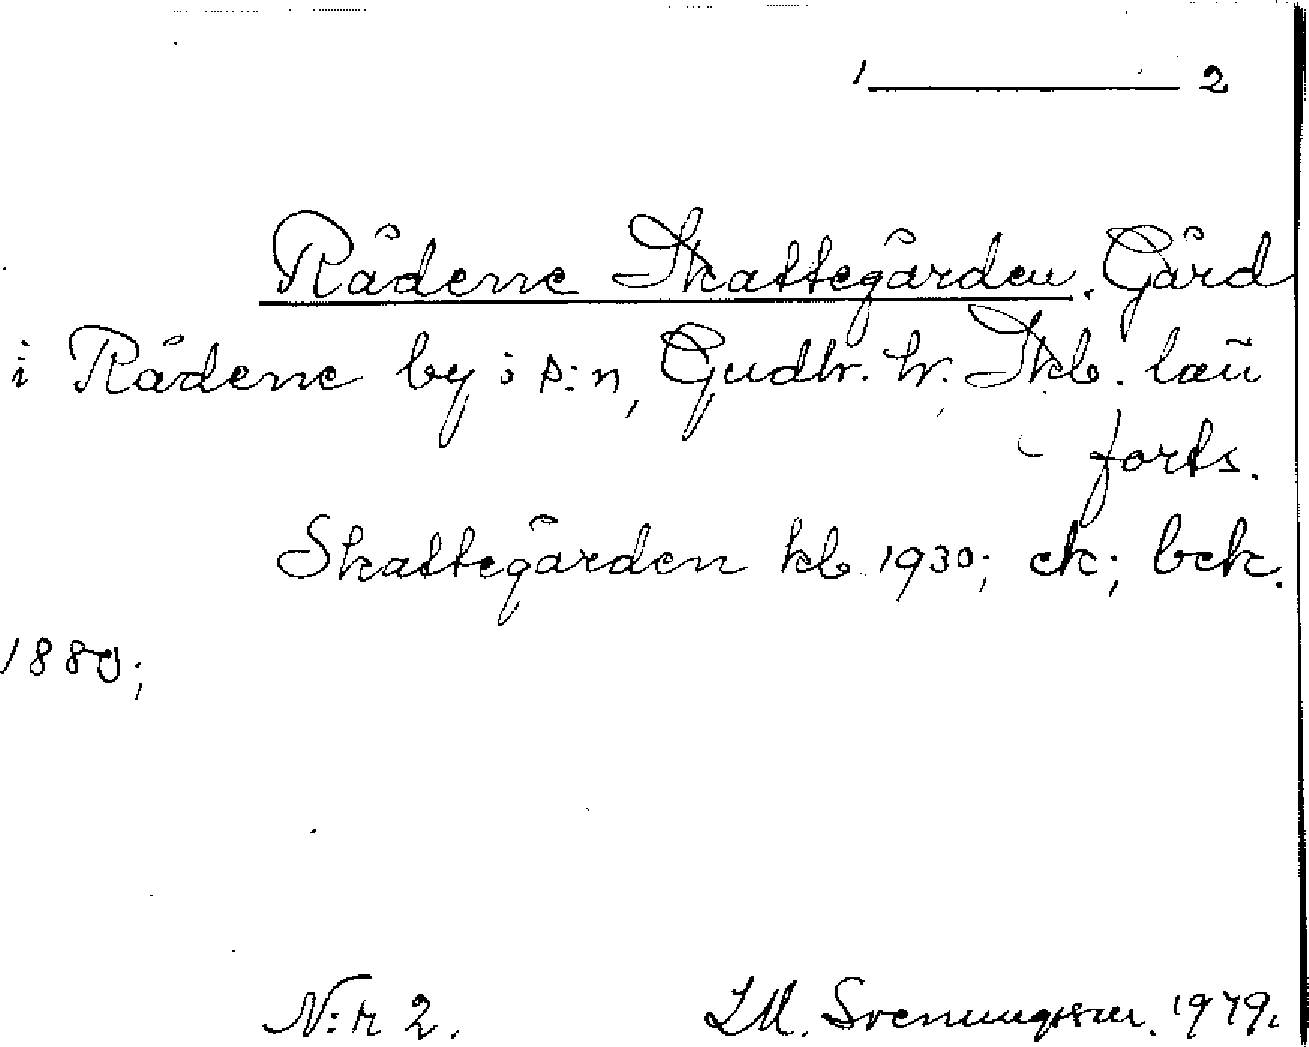 1 ———— 2
Rådene Skattegården. Gård
i Rådene by i s:n, Gudh. hr. Skb. län
- forts.
Skattegården kb 1930; ek; bek.
1880;
N:r 2.
LM. Svenungsson. 1979.